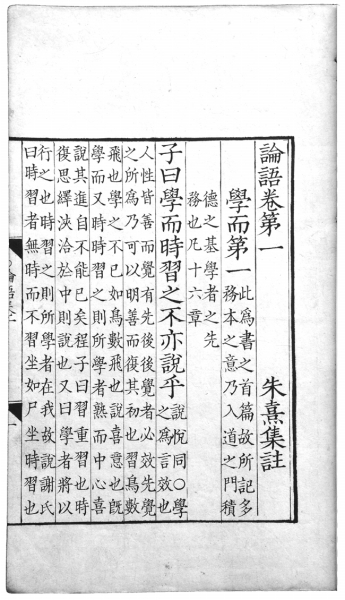 論語卷第一　朱熹集註
學而第一
此爲書之首篇故所記多
務本之意乃入道之門積
德之基學者之先
務也凡十六章
子曰學而時習之不亦說乎
說悅同○學
之爲言效也
人性皆善而覺有先後後覺者必效先覺
之所爲乃可以明善而復其初也習鳥數
飛也學之不已如鳥數飛也說喜意也旣
學而又時時習之則所學者熟而中心喜
說其進自不能已矣程子曰習重習也時
復思繹浹洽於中則說也又曰學者將以
行之也時習之則所學者在我故說謝氏
曰時習者無時而不習坐如尸坐時習也